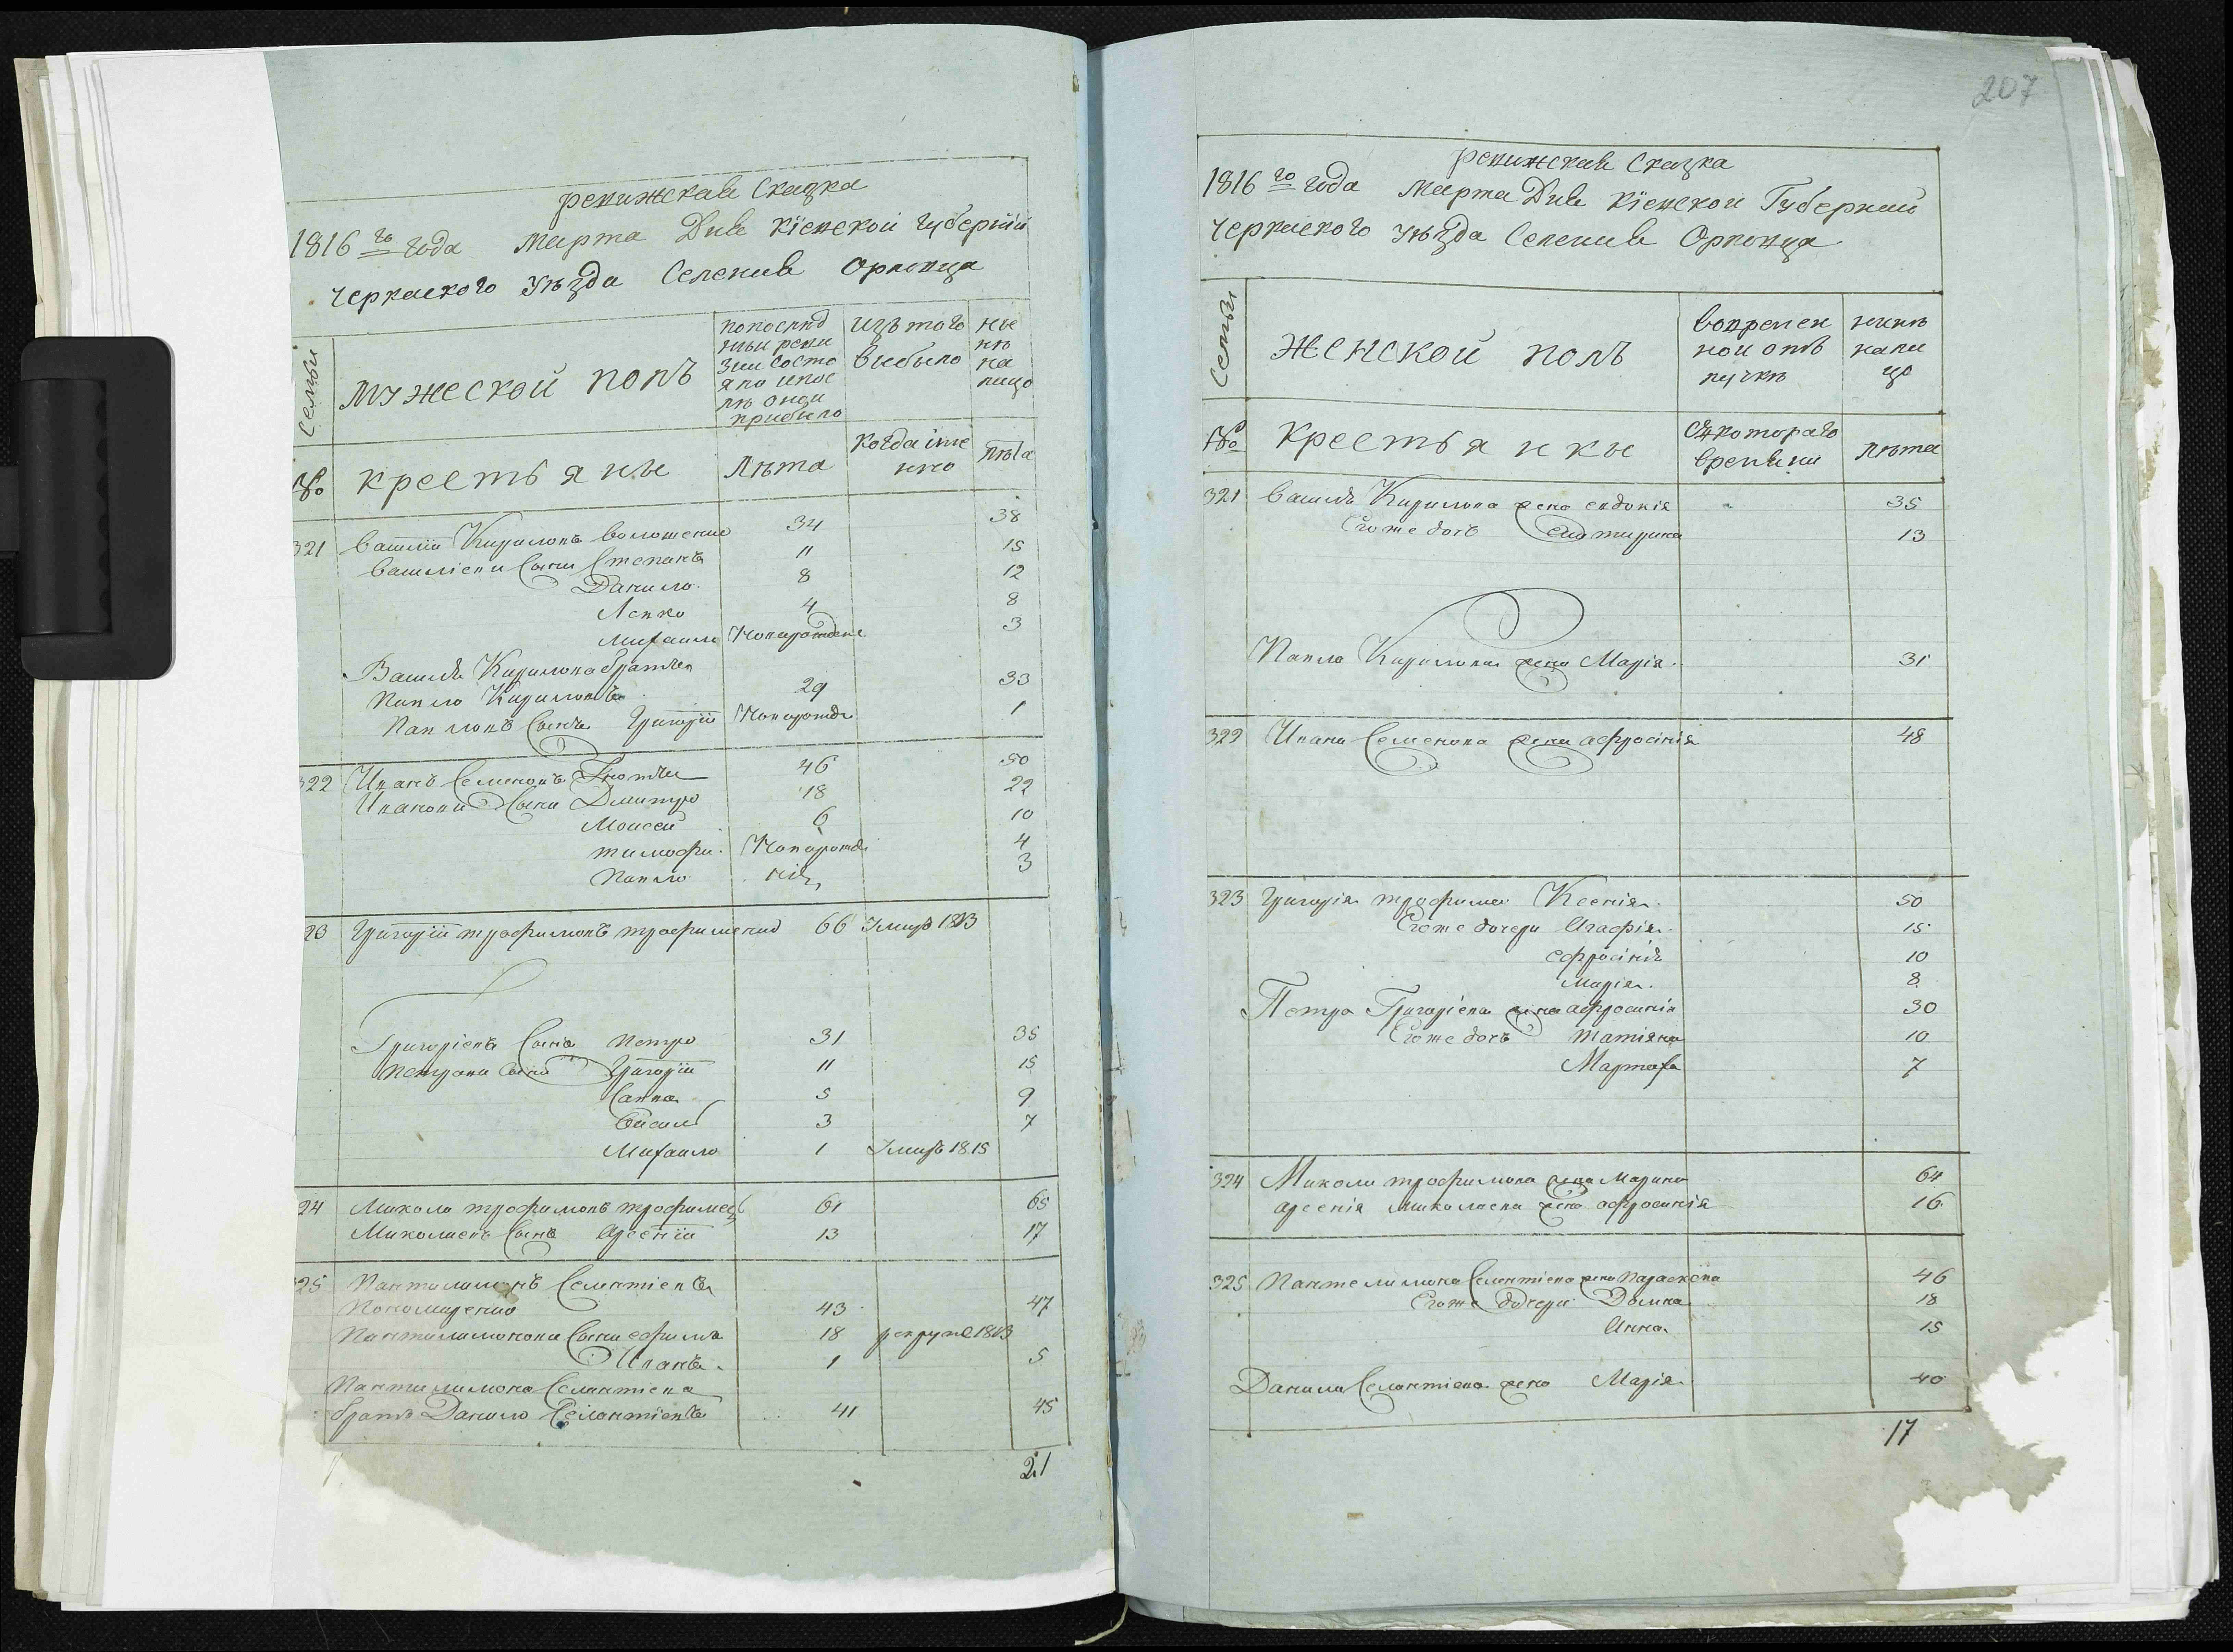 ревижская Сказка
1816го года Марта Дня Кіевской губерніи
Черкаского уѣзда Селенив Орловца
Семьи
мужеской полъ
попослѣд
ньи реви
зіи состо
яло ипос
лѣ онои
прибыло
изъ того
выбыло
ны
нѣ
на
лицо
№
крестьяны
лѣта
когда іме
нно
лѣта
321 Василіи Кириловъ волошенко 34 38
Василіеви Сыны Степанъ 11 15
Данило 8 12
Левко 4 8
Михаило Новорожден 3
Василя Кирилова братья
Павло Кириловъ 29 33
Павловъ Сынъ Григорій Новорожде 1
322 Иванъ Семеновъ 46 50
Иванови Сыны Дмитро 18 22
Моисеи 6 10
тимофи Новорожд 4
Павло 3
23 Григорій трофимовъ трофименко 66 Умиръ 1813
Григоріевъ Сынъ Петро 31 35
Петрови Сыни Григорій 11 15
Савва 5 9
Василь 3 7
Михаило 1 Умиръ 1815
24 Микола трофимовъ трофимец 61 65
Миколаевъ Сынъ Арсеніи 13 17
325 Пантилимонъ Селантіевъ
Пономаренко 43 47
Пантилимонови Сыни ефимъ 18 рекрут 1813
Иванъ 1 5
Пантилимона Селантіева
братъ Данило Селантіевъ 41 45
21
207
ревижская Сказка
1816го года Марта Дня Кіевскои Губерніи
Черкаского уѣзда Селенив Орловца
Семьи
женской полъ
вовремен
нои отъ
лучкѣ
нинѣ
нали
цо
№
крестьянкы
съкотораго
времени
лѣта
321 Василя Кирилова жена евдокія 35
Егоже дочь 13
Павла Кирилова жена Марія 31
322 Ивана Семенова жена афросінія 48
323 Григорія трофима Ксенія 50
Егоже дочери Агафія 15
ефросінія 10
Марія 8
Петра Григоріева жена афросинія 30
Егоже дочь татіяна 10
Мартафа 7
324 Миколи трофимова жена Марина 64
арсенія Миколаева жена афросинія 16
325 Пантелимона Селантіева жена Параскева 46
Егоже дочери Домна 18
Анна 15
Данила Селантіева жена Марія 40
17